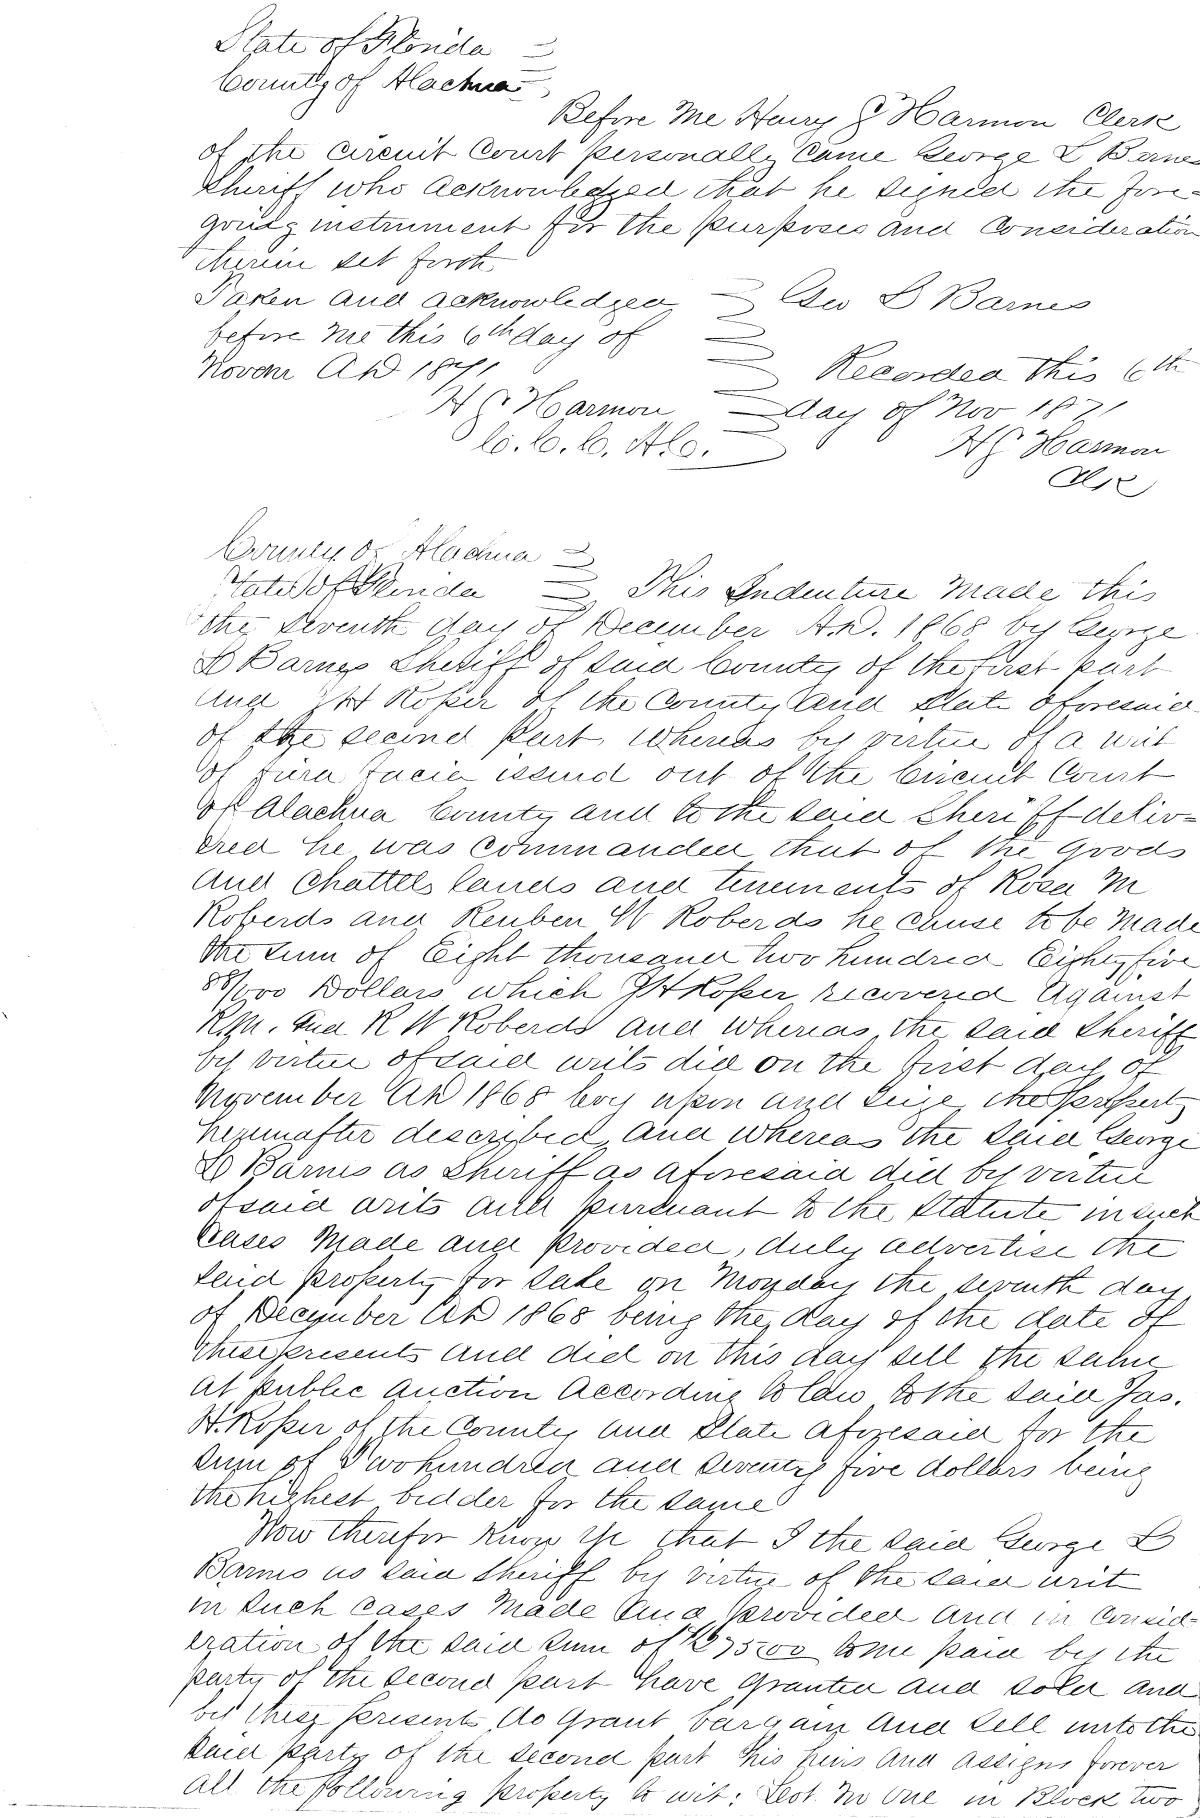 State of Florida
County of Alachua
Before Me Henry S Harmon Clerk
of the circuit Court personally came George L Barnes
Sheriff who acknowledged that he signed the fore=
going instrument for the purposes and consideration
therein set forth
Taken and acknowledged Geo L Barnes
before me this 6th day of
Novem AD 1871 Recorded this 6th
H S Harmon day of Nov 1871
C. C. C. A. C. H S Harmon
Clk
County of Alachua
State of Florida This Indenture Made this
the Seventh day of December A.D. 1868 by George
L Barnes Sheriff of said County of the first part
and J H Roper of the County and State aforesaid
of the second part Whereas by virtue of a writ
of fiera facia issued out of the Circuit Court
of Alachua County and to the said Sheriff deliv=
ered he was commanded that of the goods
and Chattels lands and tenements of Rosa M
Roberds and Reuben W Roberds he cause to be made
the sum of Eight thousand two hundred Eighty five
88/100 Dollars which J H Roper recovered against
R.M. and R W Roberds and whereas the said Sheriff
by virtue of said writs did on the first day of
November AD 1868 levy upon and seize the property
hereinafter described and whereas the said George
L Barnes as Sheriff as aforesaid did by virtue
of said writs and pursuant to the Statute in such
Cases Made and provided, duly advertise the
said property for sale on Monday the seventh day
of December AD 1868 being the day of the date of
these presents and did on this day sell the same
at public auction According to law to the said Jas.
H. Roper of the County and State aforesaid for the
sum of Two hundred and seventy five dollars being
the highest bidder for the same
Now therefor Know Ye that I the said George L
Barnes as said Sheriff by virtue of the said writ
in such cases Made and provided and in consid=
eration of the said sum of $275.00 to me paid by the
party of the second part have granted and sold and
by these presents do grant bargain and sell unto the
said party of the second part his heirs and assigns forever
all the following property to wit: Lot No One in Block two